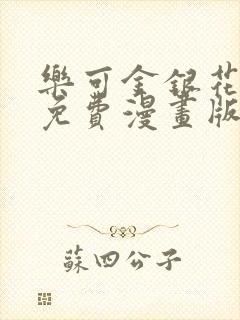 樂可金銀花
免費漫畫版
蘇四公子